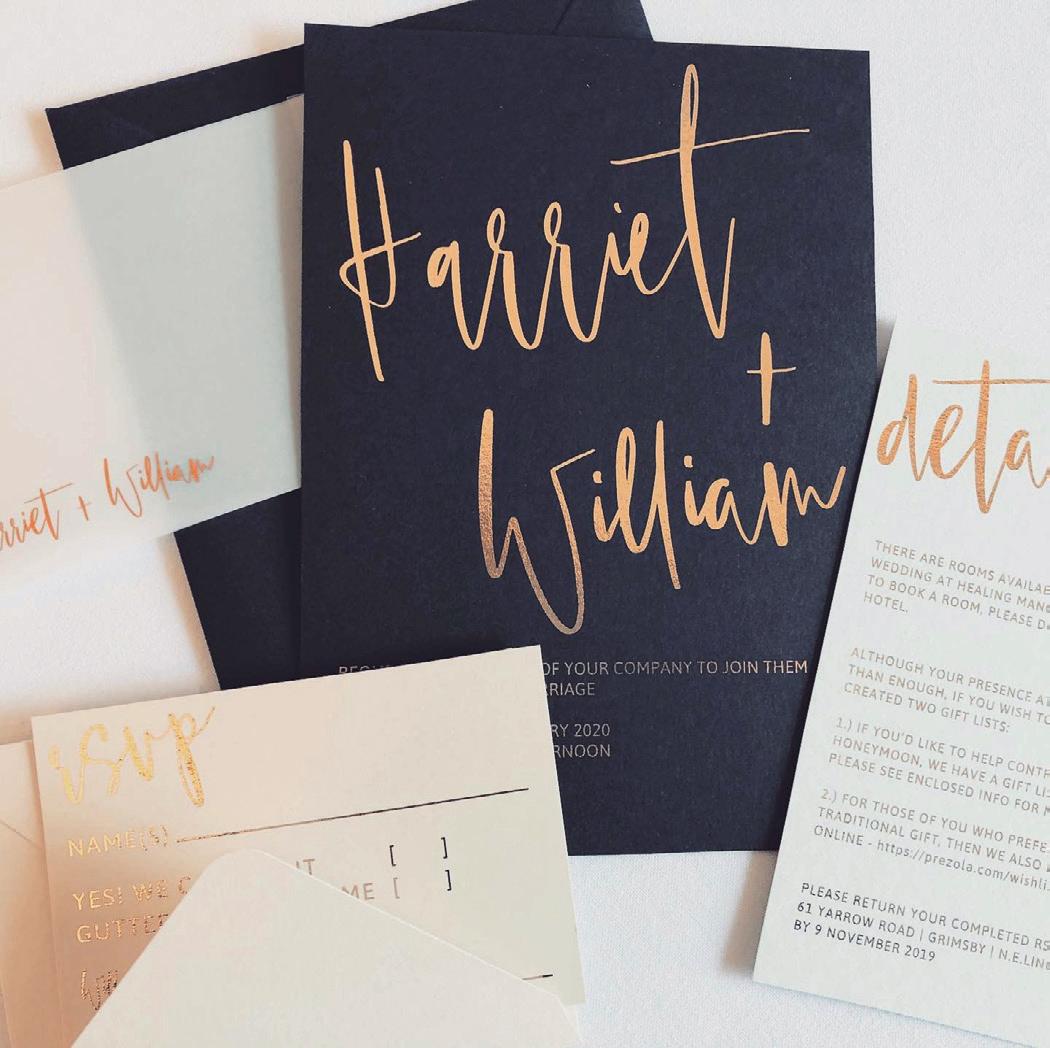 Harriet
+
William
OF YOUR COMPANY TO JOIN THEM
2020
rriet + William
rsvp
NAME(S)
YES! WE
ME
[ ]
[ ]
deta
THERE ARE ROOMS AVAILAB
WEDDING AT HEALING MAN
TO BOOK A ROOM, PLEASE
HOTEL.
ALTHOUGH YOUR PRESENCE AT
THAN ENOUGH, IF YOU WISH TO
CREATED TWO GIFT LISTS:
1.) IF YOU'D LIKE TO HELP CONTR
HONEYMOON, WE HAVE A GIFT LIS
PLEASE SEE ENCLOSED INFO FOR
2.) FOR THOSE OF YOU WHO PREFE
TRADITIONAL GIFT, THEN WE ALSO
ONLINE - https://prezola.com/wishli
PLEASE RETURN YOUR COMPLETED RS
61 YARROW ROAD | GRIMSBY | N.E.LIN
BY 9 NOVEMBER 2019